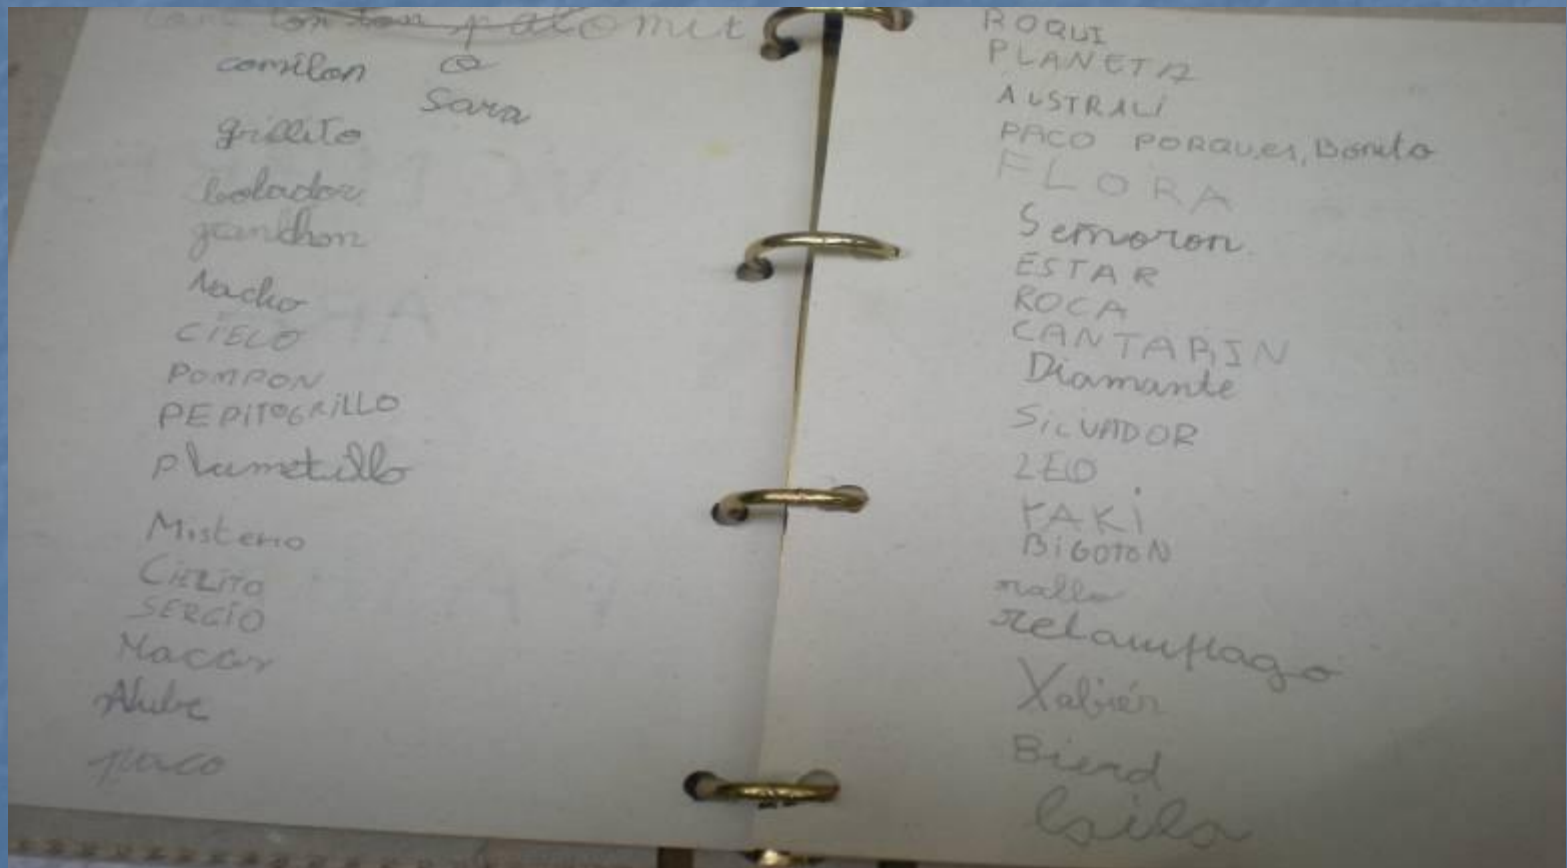 palomit
comilon a
Sara
grillito
bolador
ganchon
Nacho
CIELO
POMPON
PEPITOGRILLO
plumetillo
Misterio
CIELITO
SERGIO
Macor
Nube
paco
ROQUI
PLANETA
AUSTRALI
PACO PORQUES, Bonito
FLORA
Semoron
ESTAR
ROCA
CANTARIN
Diamante
SILVADOR
LEO
YAKI
BIGOTON
rallo
relaumflago
Xabiér
Bierd